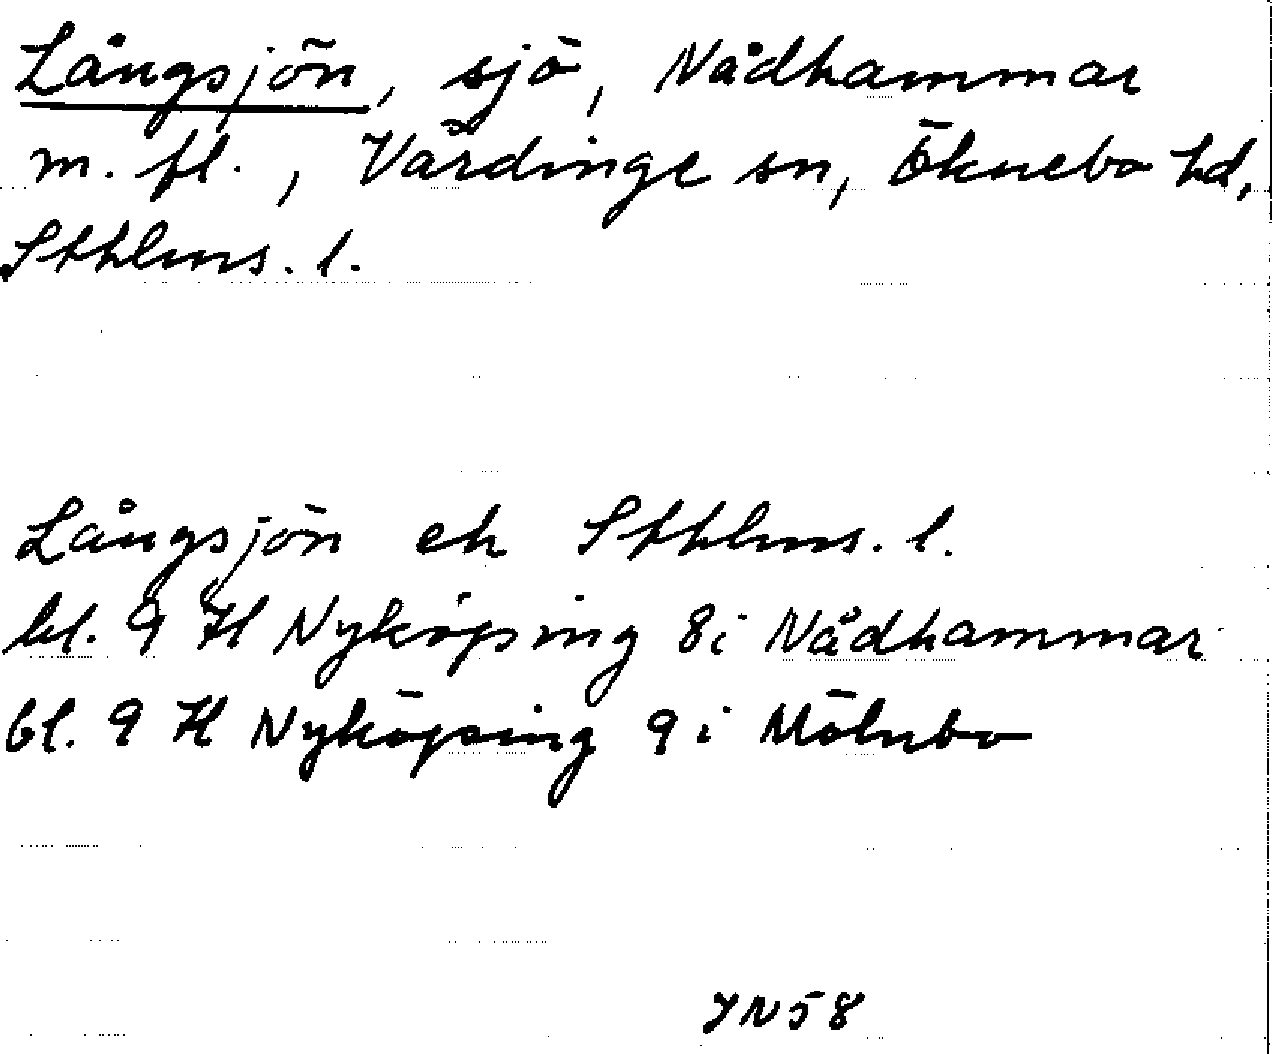 Långsjön, sjö, Nådhammar
m. fl., Vårdinge sn, Öknebo hd,
Sthlms. l.
Långsjön ek Sthlms. l.
bl. 9 H Nyköping 8i Nådhammar
bl. 9 H Nyköping 9 i Mölnbo
YN58